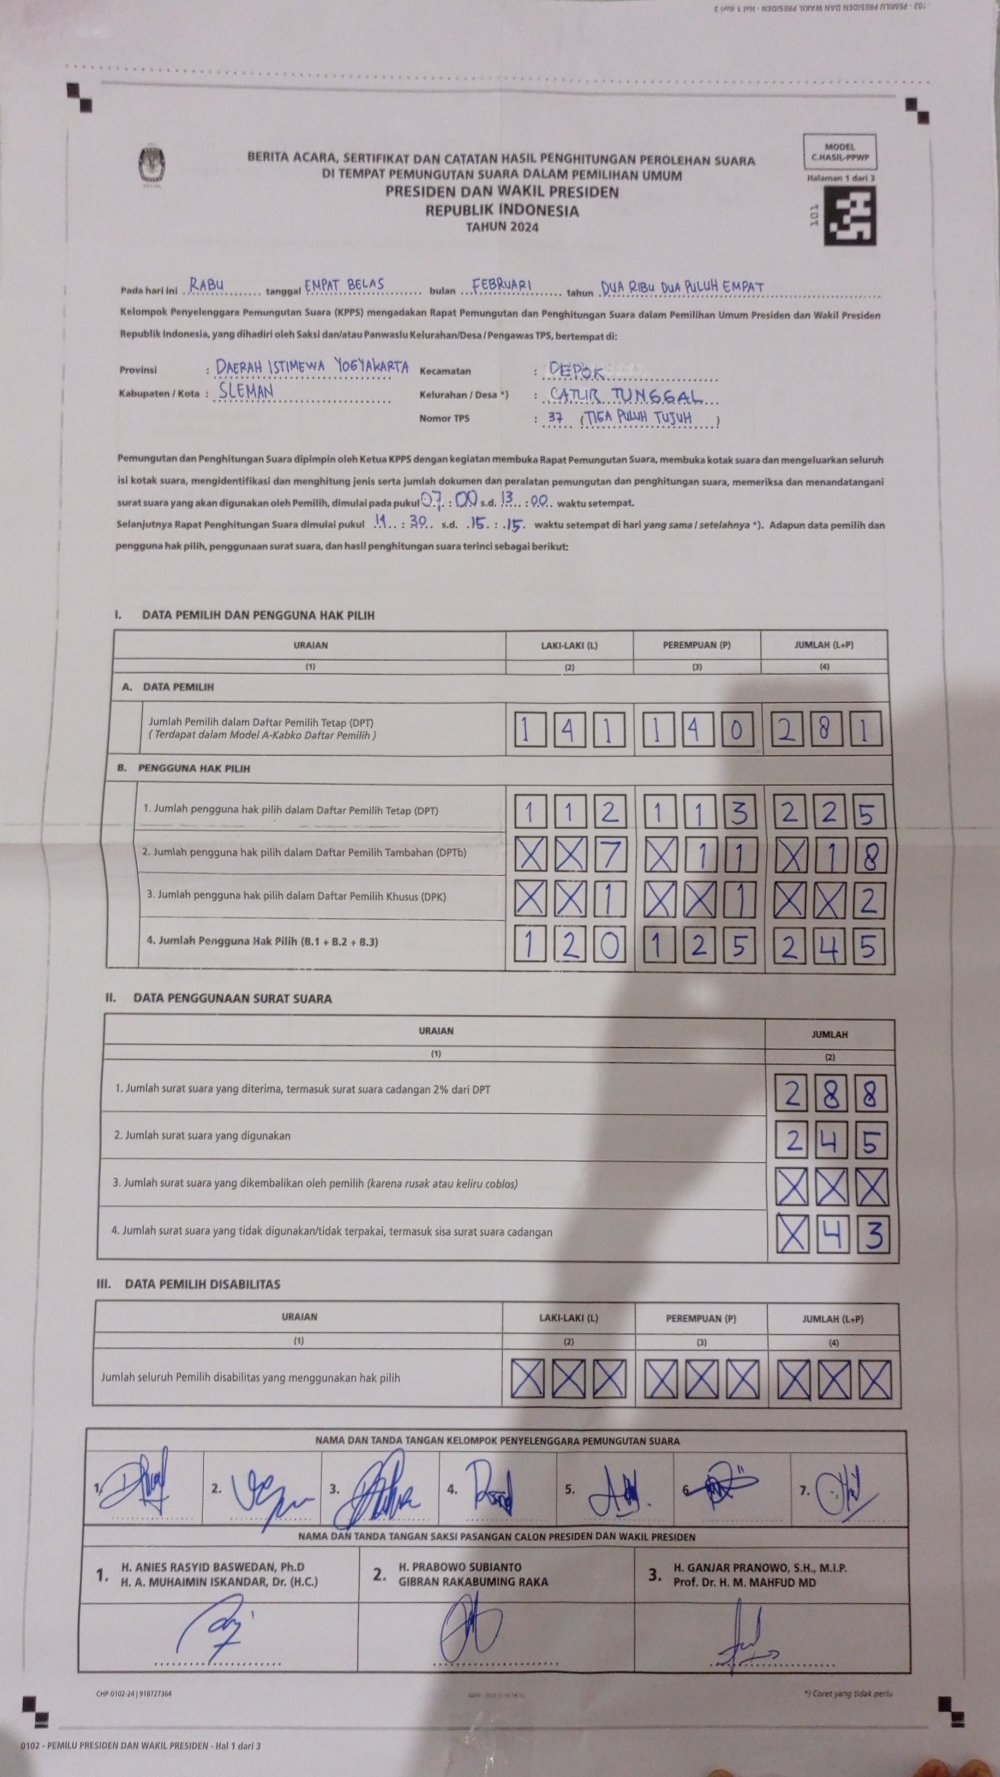 102 - PEMILU PRESIDEN DAN WAKIL PRESIDEN - Hal 1 dari 3
MODEL
C.HASIL-PPWP
Halaman 1 dari 3
101
BERITA ACARA, SERTIFIKAT DAN CATATAN HASIL PENGHITUNGAN PEROLEHAN SUARA
DI TEMPAT PEMUNGUTAN SUARA DALAM PEMILIHAN UMUM
PRESIDEN DAN WAKIL PRESIDEN
REPUBLIK INDONESIA
TAHUN 2024
Pada hari ini RABU tanggal EMPAT BELAS bulan FEBRUARI tahun DUA RIBU DUA PULUH EMPAT
Kelompok Penyelenggara Pemungutan Suara (KPPS) mengadakan Rapat Pemungutan dan Penghitungan Suara dalam Pemilihan Umum Presiden dan Wakil Presiden
Republik Indonesia, yang dihadiri oleh Saksi dan/atau Panwaslu Kelurahan/Desa / Pengawas TPS, bertempat di:
Provinsi : DAERAH ISTIMEWA YOGYAKARTA Kecamatan : DEPOK
Kabupaten / Kota : SLEMAN Kelurahan / Desa *) : CATUR TUNGGAL
Nomor TPS : 37 (TIGA PULUH TUJUH)
Pemungutan dan Penghitungan Suara dipimpin oleh Ketua KPPS dengan kegiatan membuka Rapat Pemungutan Suara, membuka kotak suara dan mengeluarkan seluruh
isi kotak suara, mengidentifikasi dan menghitung jenis serta jumlah dokumen dan peralatan pemungutan dan penghitungan suara, memeriksa dan menandatangani
surat suara yang akan digunakan oleh Pemilih, dimulai pada pukul 07 : 00 s.d. 13 : 00 waktu setempat.
Selanjutnya Rapat Penghitungan Suara dimulai pukul 11 : 30 s.d. 15 : 15 waktu setempat di hari yang sama / setelahnya *). Adapun data pemilih dan
pengguna hak pilih, penggunaan surat suara, dan hasil penghitungan suara terinci sebagai berikut:
I. DATA PEMILIH DAN PENGGUNA HAK PILIH
URAIAN LAKI-LAKI (L) PEREMPUAN (P) JUMLAH (L+P)
(1) (2) (3) (4)
A. DATA PEMILIH
Jumlah Pemilih dalam Daftar Pemilih Tetap (DPT) 1 4 1 1 4 0 2 8 1
( Terdapat dalam Model A-Kabko Daftar Pemilih )
B. PENGGUNA HAK PILIH
1. Jumlah pengguna hak pilih dalam Daftar Pemilih Tetap (DPT) 1 1 2 1 1 3 2 2 5
2. Jumlah pengguna hak pilih dalam Daftar Pemilih Tambahan (DPTb) X X 7 X 1 1 X 1 8
3. Jumlah pengguna hak pilih dalam Daftar Pemilih Khusus (DPK) X X 1 X X 1 X X 2
4. Jumlah Pengguna Hak Pilih (B.1 + B.2 + B.3) 1 2 0 1 2 5 2 4 5
II. DATA PENGGUNAAN SURAT SUARA
URAIAN JUMLAH
(1) (2)
1. Jumlah surat suara yang diterima, termasuk surat suara cadangan 2% dari DPT 2 8 8
2. Jumlah surat suara yang digunakan 2 4 5
3. Jumlah surat suara yang dikembalikan oleh pemilih (karena rusak atau keliru coblos) X X X
4. Jumlah surat suara yang tidak digunakan/tidak terpakai, termasuk sisa surat suara cadangan X 4 3
III. DATA PEMILIH DISABILITAS
URAIAN LAKI-LAKI (L) PEREMPUAN (P) JUMLAH (L+P)
(1) (2) (3) (4)
Jumlah seluruh Pemilih disabilitas yang menggunakan hak pilih X X X X X X X X X
NAMA DAN TANDA TANGAN KELOMPOK PENYELENGGARA PEMUNGUTAN SUARA
1. 2. 3. 4. 5. 6. 7.
NAMA DAN TANDA TANGAN SAKSI PASANGAN CALON PRESIDEN DAN WAKIL PRESIDEN
1. H. ANIES RASYID BASWEDAN, Ph.D
H. A. MUHAIMIN ISKANDAR, Dr. (H.C.)
2. H. PRABOWO SUBIANTO
GIBRAN RAKABUMING RAKA
3. H. GANJAR PRANOWO, S.H., M.I.P.
Prof. Dr. H. M. MAHFUD MD
CHP-0102-24 | 918727364
*) Coret yang tidak perlu
0102 - PEMILU PRESIDEN DAN WAKIL PRESIDEN - Hal 1 dari 3